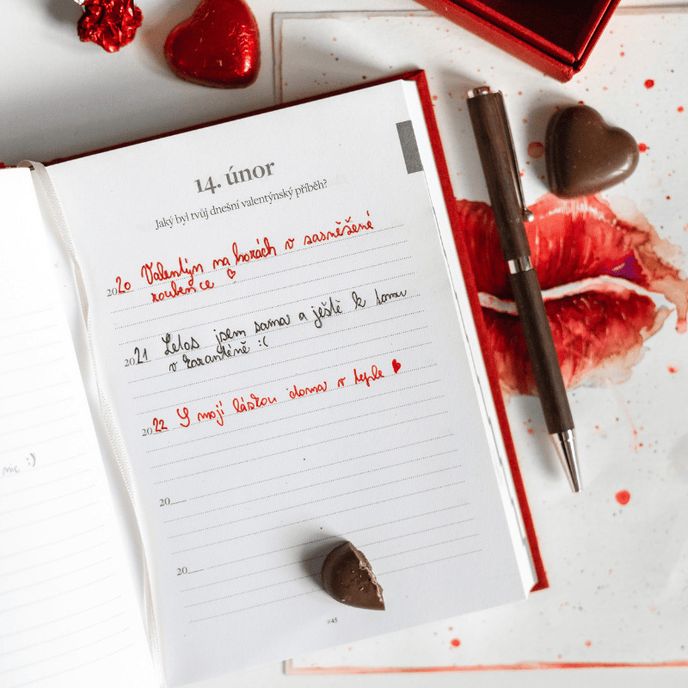 14. únor
Jaký byl tvůj dnešní valentýnský příběh?
2020 Valentýn na horách v zasněžené
roubence ♡
2021 Letos jsem sama a ještě k tomu
v karanténě :(
2022 S mojí láskou doma v teple ♥
20
20
#45
me :)